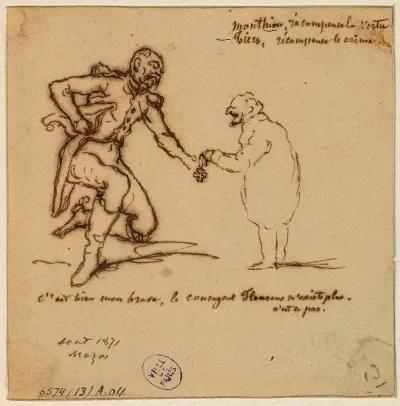 Monthion, récompense la vertu
— Tiers, récompense le crime.
C'est bien mon brave, le Flourens n'existe plus.
n'est ce pas.
aout 1871
Mazas
VILLE DE PARIS
0574 /13/ A.04
13